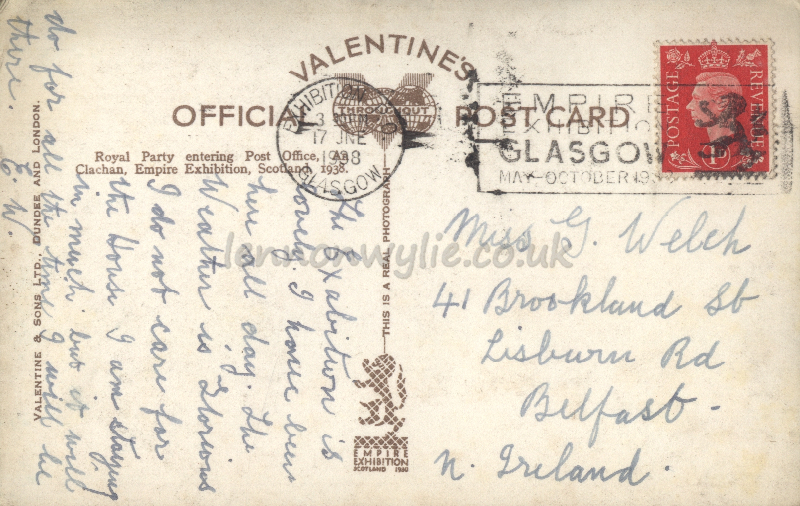 VALENTINE'S
OFFICIAL POST CARD
THROUGHOUT
Royal Party entering Post Office, An
Clachan, Empire Exhibition, Scotland, 1938.
EXHIBITION
17 JNE
1938
GLASGOW
EMPIRE
EXHIBITION
GLASGOW
MAY-OCTOBER 193
POSTAGE
REVENUE
1D
The Exabition is
lovely. I have been
here all day. The
Weather is Glorious
I do not care for
the House I am staying
in much but it will
do for all the time I will be
there.
E. W.
Miss G. Welch
41 Brookland St
Lisburn Rd
Belfast.
N. Ireland.
THIS IS A REAL PHOTOGRAPH
VALENTINE & SONS LTD., DUNDEE AND LONDON.
EMPIRE
EXHIBITION
SCOTLAND 1938
lennonwylie.co.uk